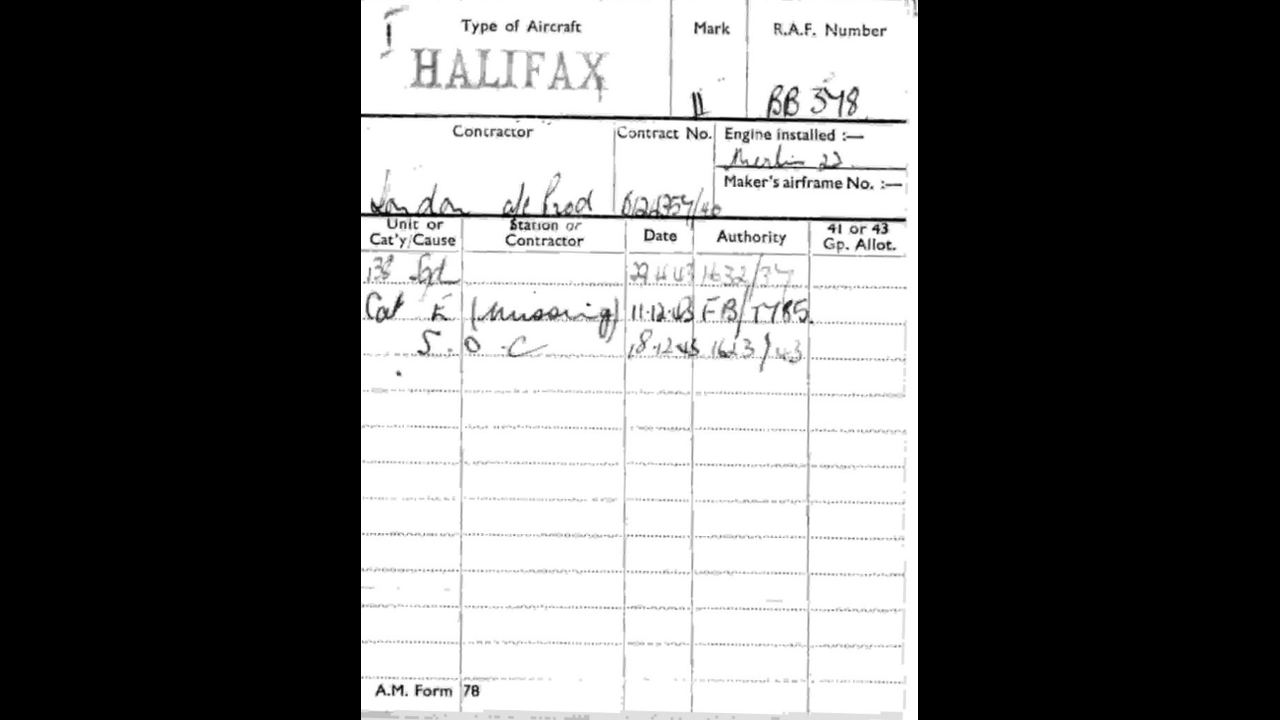 Type of Aircraft Mark R.A.F. Number
HALIFAX II BB 378
Contractor Contract No. Engine installed :—
Merlin 22
Maker's airframe No. :—
London a/c Prod
Unit or Cat'y/Cause Station or Contractor Date Authority 41 or 43 Gp. Allot.
138 Sqd 1632/37
Cat E (Missing) 11.12.43 FB/T785.
S.O.C 18.12.43 1623/43
A.M. Form 78